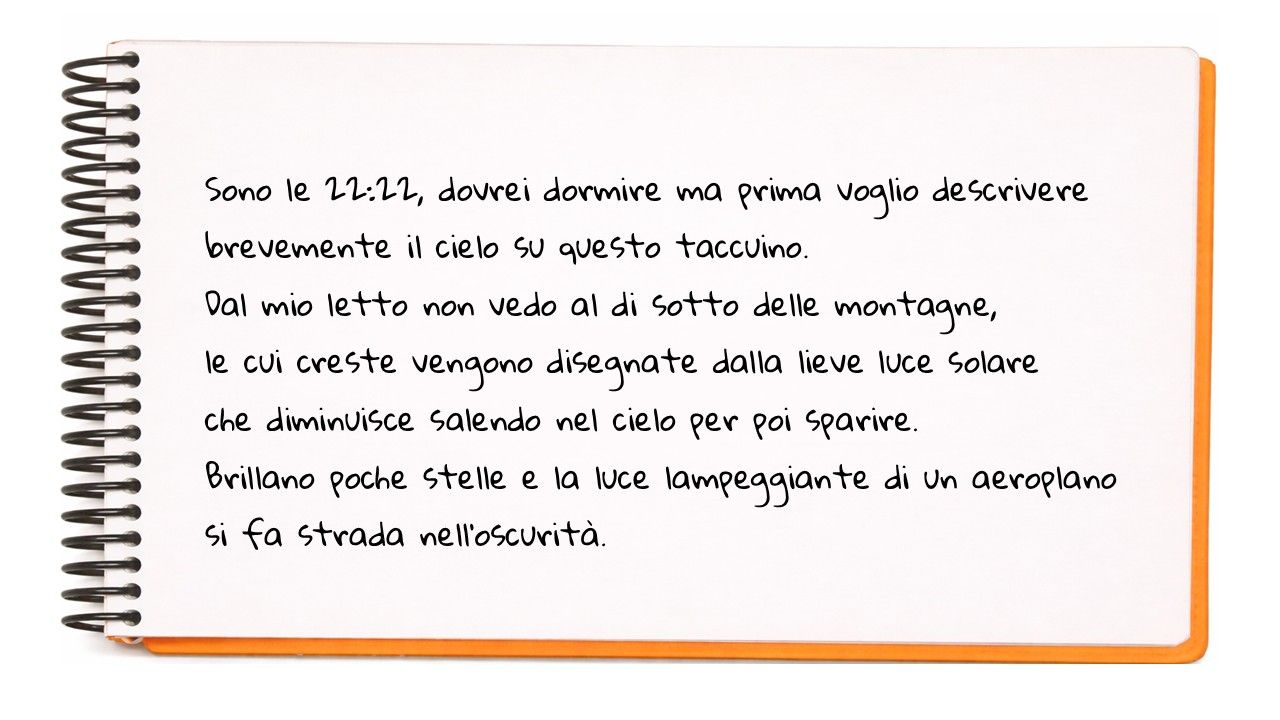 Sono le 22:22, dovrei dormire ma prima voglio descrivere
brevemente il cielo su questo taccuino.
Dal mio letto non vedo al di sotto delle montagne,
le cui creste vengono disegnate dalla lieve luce solare
che diminuisce salendo nel cielo per poi sparire.
Brillano poche stelle e la luce lampeggiante di un aeroplano
si fa strada nell'oscurità.